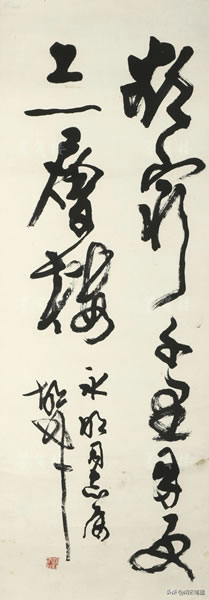 欲穷千里目更
上一层楼
永明同志属